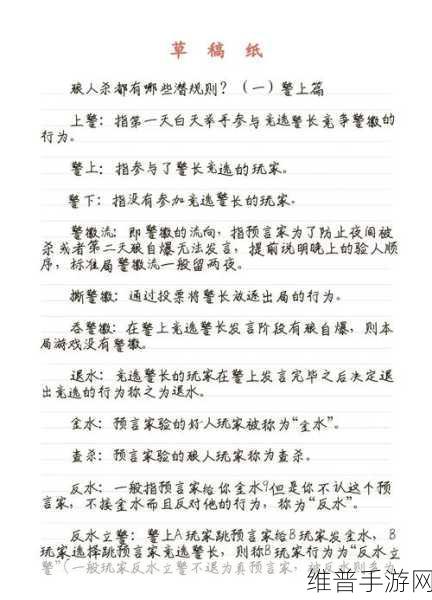 草 稿 纸
狼人杀都有哪些潜规则？（一）警上篇
上警：指第一天白天举手参与竞选警长竞争警徽的
行为。
警上：指参与了警长竞选的玩家。
警下：指没有参加竞选警长的玩家。
警徽流：即警徽的流向，指预言家为了防止夜间被
杀或者第二天狼自爆无法发言，提前说明晚上的验人顺
序，标准局警徽流一般留两夜。
撕警徽：通过投票将警长放逐出局的行为。
吞警徽：在警上竞选警长发言阶段有狼自爆，则本
局游戏没有警徽。
退水：竞选警长的玩家在警上发言完毕之后决定退
出竞选的行为称之为退水。
金水：预言家验的好人玩家被称为“金水”。
查杀：预言家验的狼人玩家称为查杀。
反水：一般指预言家给你金水9但是你不认这个预
言家，不接金水而且反对他的行为，称为“反水”。
反水立警：警上A玩家跳预言家给B玩家发金水，B
玩家选择跳预言家竞选警长，则称B玩家行为为“反水立
警”（一般玩家反水立警不退为真预言家，被反水则多为
维普手游网